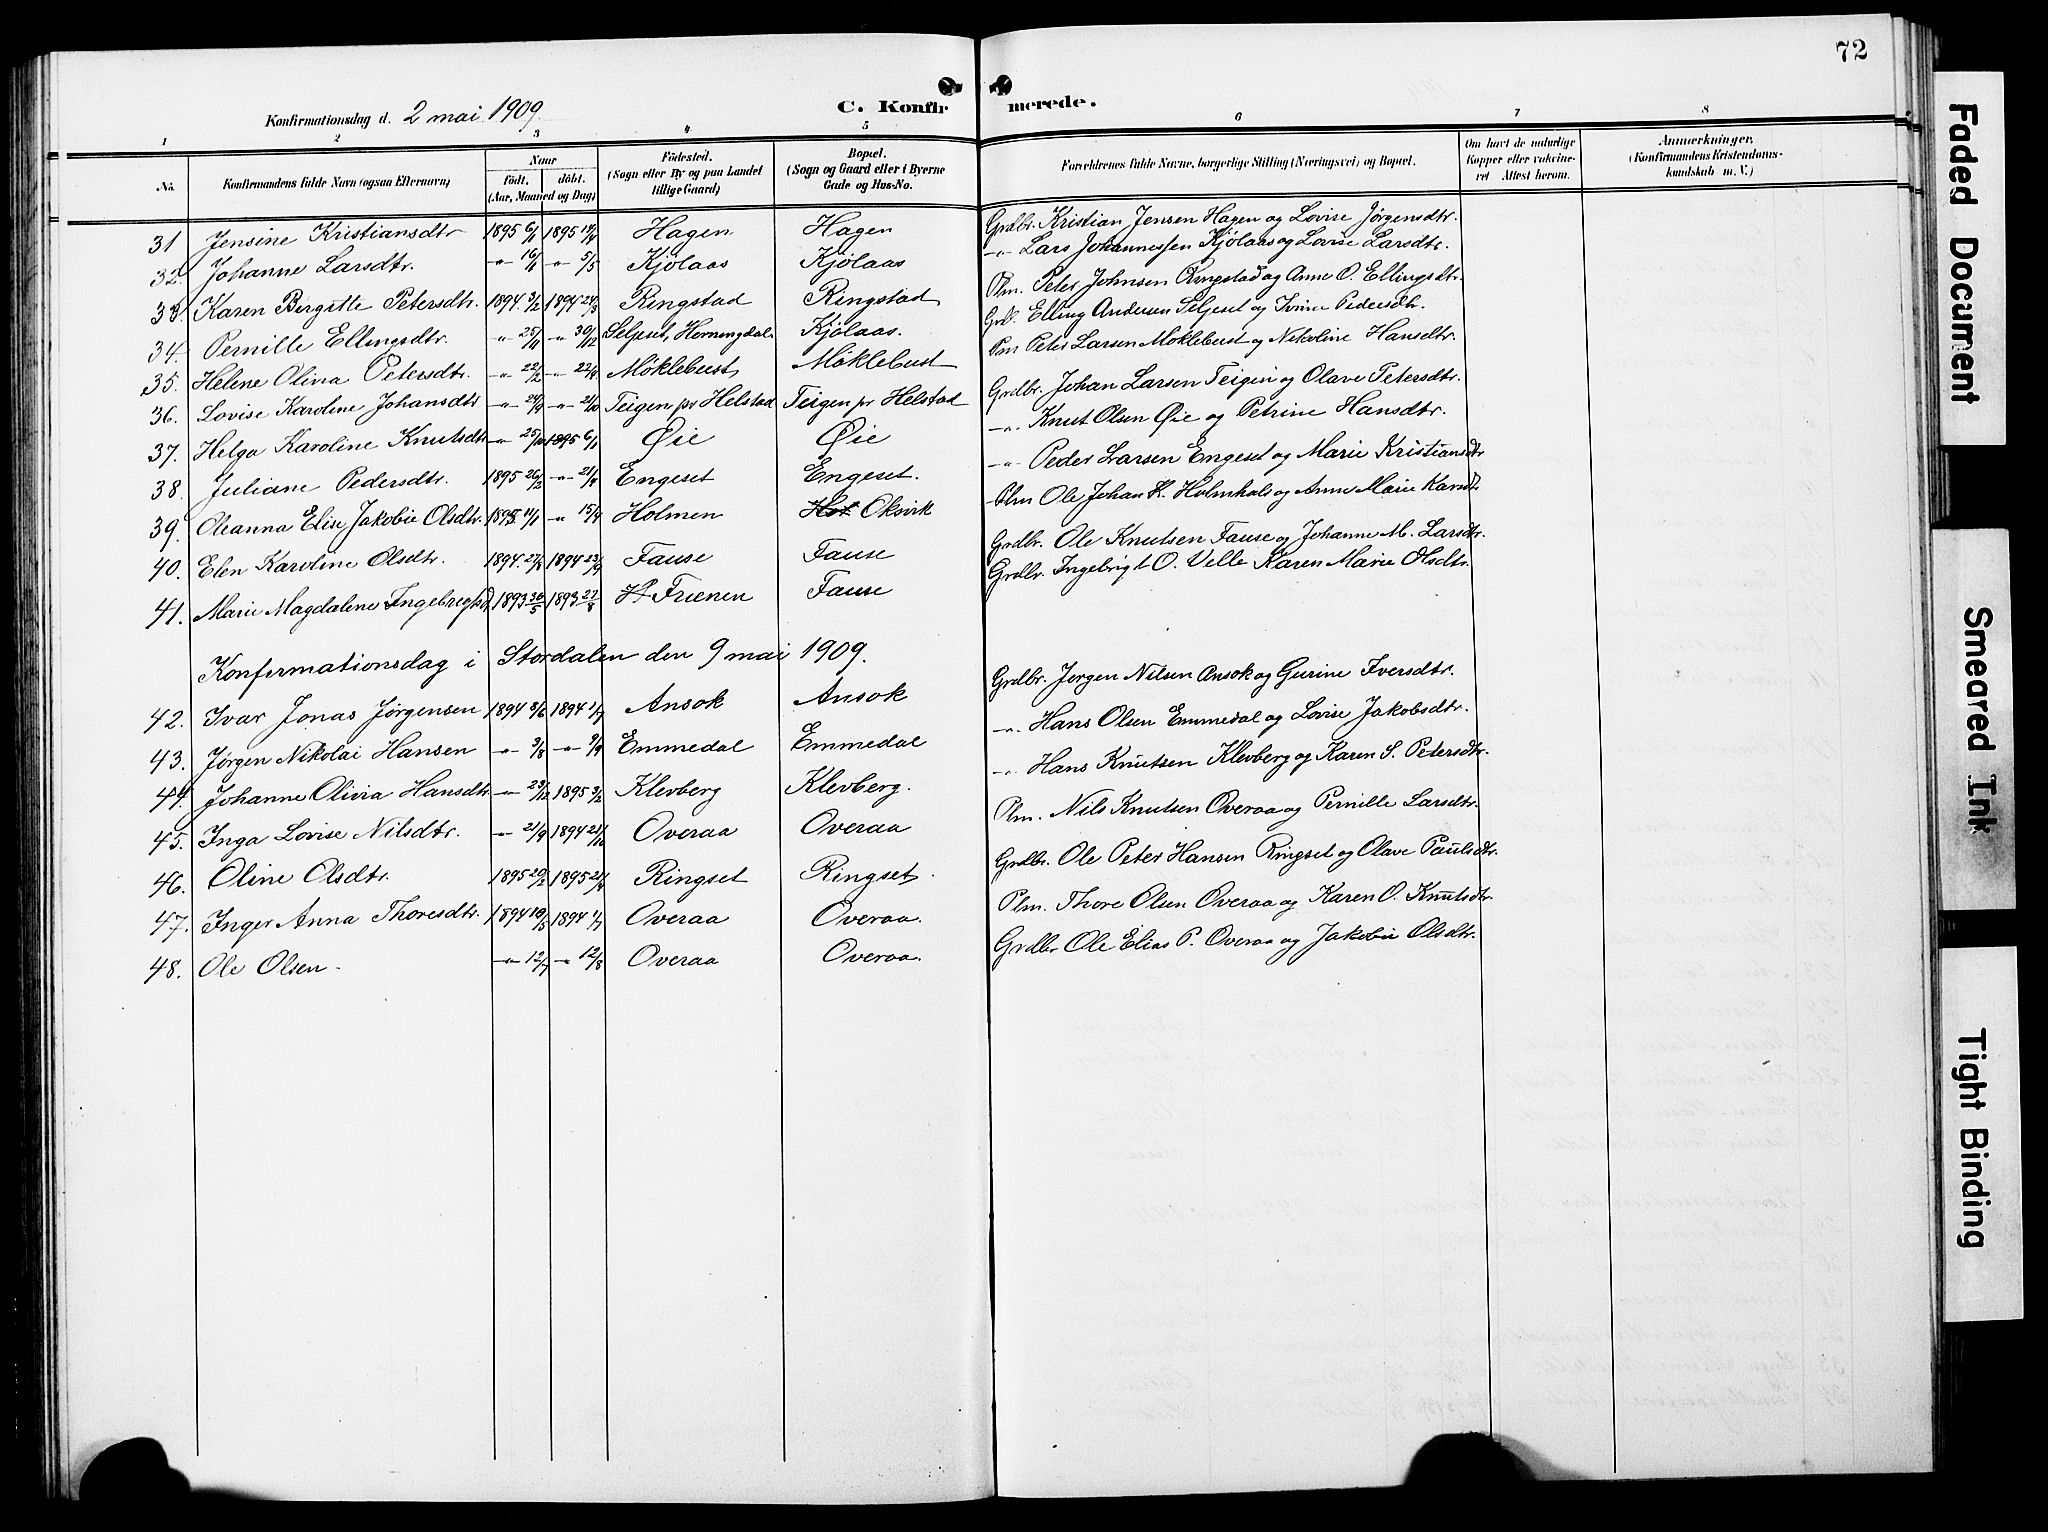 72
Konfirmationsdag d. 2 mai 1909. C. Konfirmerede.
1 2 3 4 5 6 7 8
No. Konfirmandens fulde Navn (ogsaa Efternavn) Naar födt. döbt. (Aar, Maaned og Dag) Födested. (Sogn eller By og paa Landet tillige Gaard) Bopæl. (Sogn og Gaard eller i Byerne Gade og Hus-No. Forældrenes fulde Navne, borgerlige Stilling (Næringsvei) og Bopæl. Om havt de naturlige Kopper eller vaccineret. Attest herom. Anmærkninger. (Konfirmandens Kristendomskundskab m. V.)
31 Jensine Kristiansdtr 1895 6/1 1895 Hagen Hagen Grdbr. Kristian Jensen Hagen og Lovise Jørgensdtr.
32. Johanne Larsdtr. -"- 16/1 -"- 5/5 Kjølaas Kjølaas -"- Lars Johannessen Kjølaas og Lovise Larsdtr.
33. Karen Bergitte Petersdtr. 1894 3/2 1894 24/3 Ringstad Ringstad Plm. Peter Johnsen Ringstad og Anne O. Ellingsdtr.
34. Pernille Ellingsdtr. -"- 25/11 -"- 30/12 Seljeset, Horningdal. Kjølaas. Grb. Elling Andersen Seljeset og Ivine Pedersdtr.
35. Helene Olina Petersdtr. -"- 22/2 -"- 22/4 Møklebust Møklebust Pm Peter Larsen Møklebust og Nikoline Hansdtr.
36. Lovise Karoline Johansdtr -"- 24/9 -"- 21/10 Teigen pr Helstad Teigen pr Helstad Grdbr. Johan Larsen Teigen og Olave Petersdtr.
37. Helga Karoline Knutsdtr -"- 25/10 1895 6/1 Øie Øie -"- Knut Olsen Øie og Petrine Hansdtr.
38. Juliane Pedersdtr. 1895 26/2 -"- 21/4 Engeset Engeset. -"- Peder Larsen Engeset og Marie Kristiansdtr
39. Oleanna Elise Jakobie Olsdtr. 1895 11/1 -"- 15/4 Holmen Oksvik Plm Ole Johan K. Holmhals og Anne Marie
40. Elen Karoline Olsdtr. 1894. 27/8 1894 23/9 Fause Fause Grdbr. Ole Knutsen Fause og Johanne M. Larsdtr.
41. Marie Magdalene 1893 30/5 1893 27/8 Frienen Fause Grdbr. Ingebrigt O. Velle Karen Marie Olsdtr.
Konfirmationsdag i Stordalen den 9 mai 1909.
42. Ivar Jonas Jørgensen 1894 3/6 1894 1/7 Ansok Ansok Grdbr. Jørgen Nilsen Ansok og Gurine Iversdtr.
43. Jørgen Nikolai Hansen -"- 3/8 -"- 9/9 Emmedal Emmedal -"- Hans Olsen Emmedal og Lovise Jakobsdtr.
44. Johanne Olivia Hansdtr -"- 23/12 1895 3/2 Klevberg Klevberg. -"- Hans Knutsen Klevberg og Karen S. Petersdtr.
45. Inga Lovise Nilsdtr. -"- 21/9 1894 21/10 Overaa Overaa Plm. Nils Knutsen Overaa og Pernille Larsdtr.
46. Oline Olsdtr. 1895 20/2 1895 21/4 Ringset Ringset. Grdbr. Ole Peter Hansen Ringset og Olave Paulsdtr.
47. Inger Anna Thoresdtr. 1894 10/5 1894 1/7 Overaa Overaa. Plm. Thore Olsen Overaa og Karen O. Knutsdtr.
48. Ole Olsen -"- 12/7 -"- 12/8 Overaa Overaa. Grdbr Ole Elias P. Overaa og Jakobie Olsdtr.
Faded Document
Smeared Ink
Tight Binding